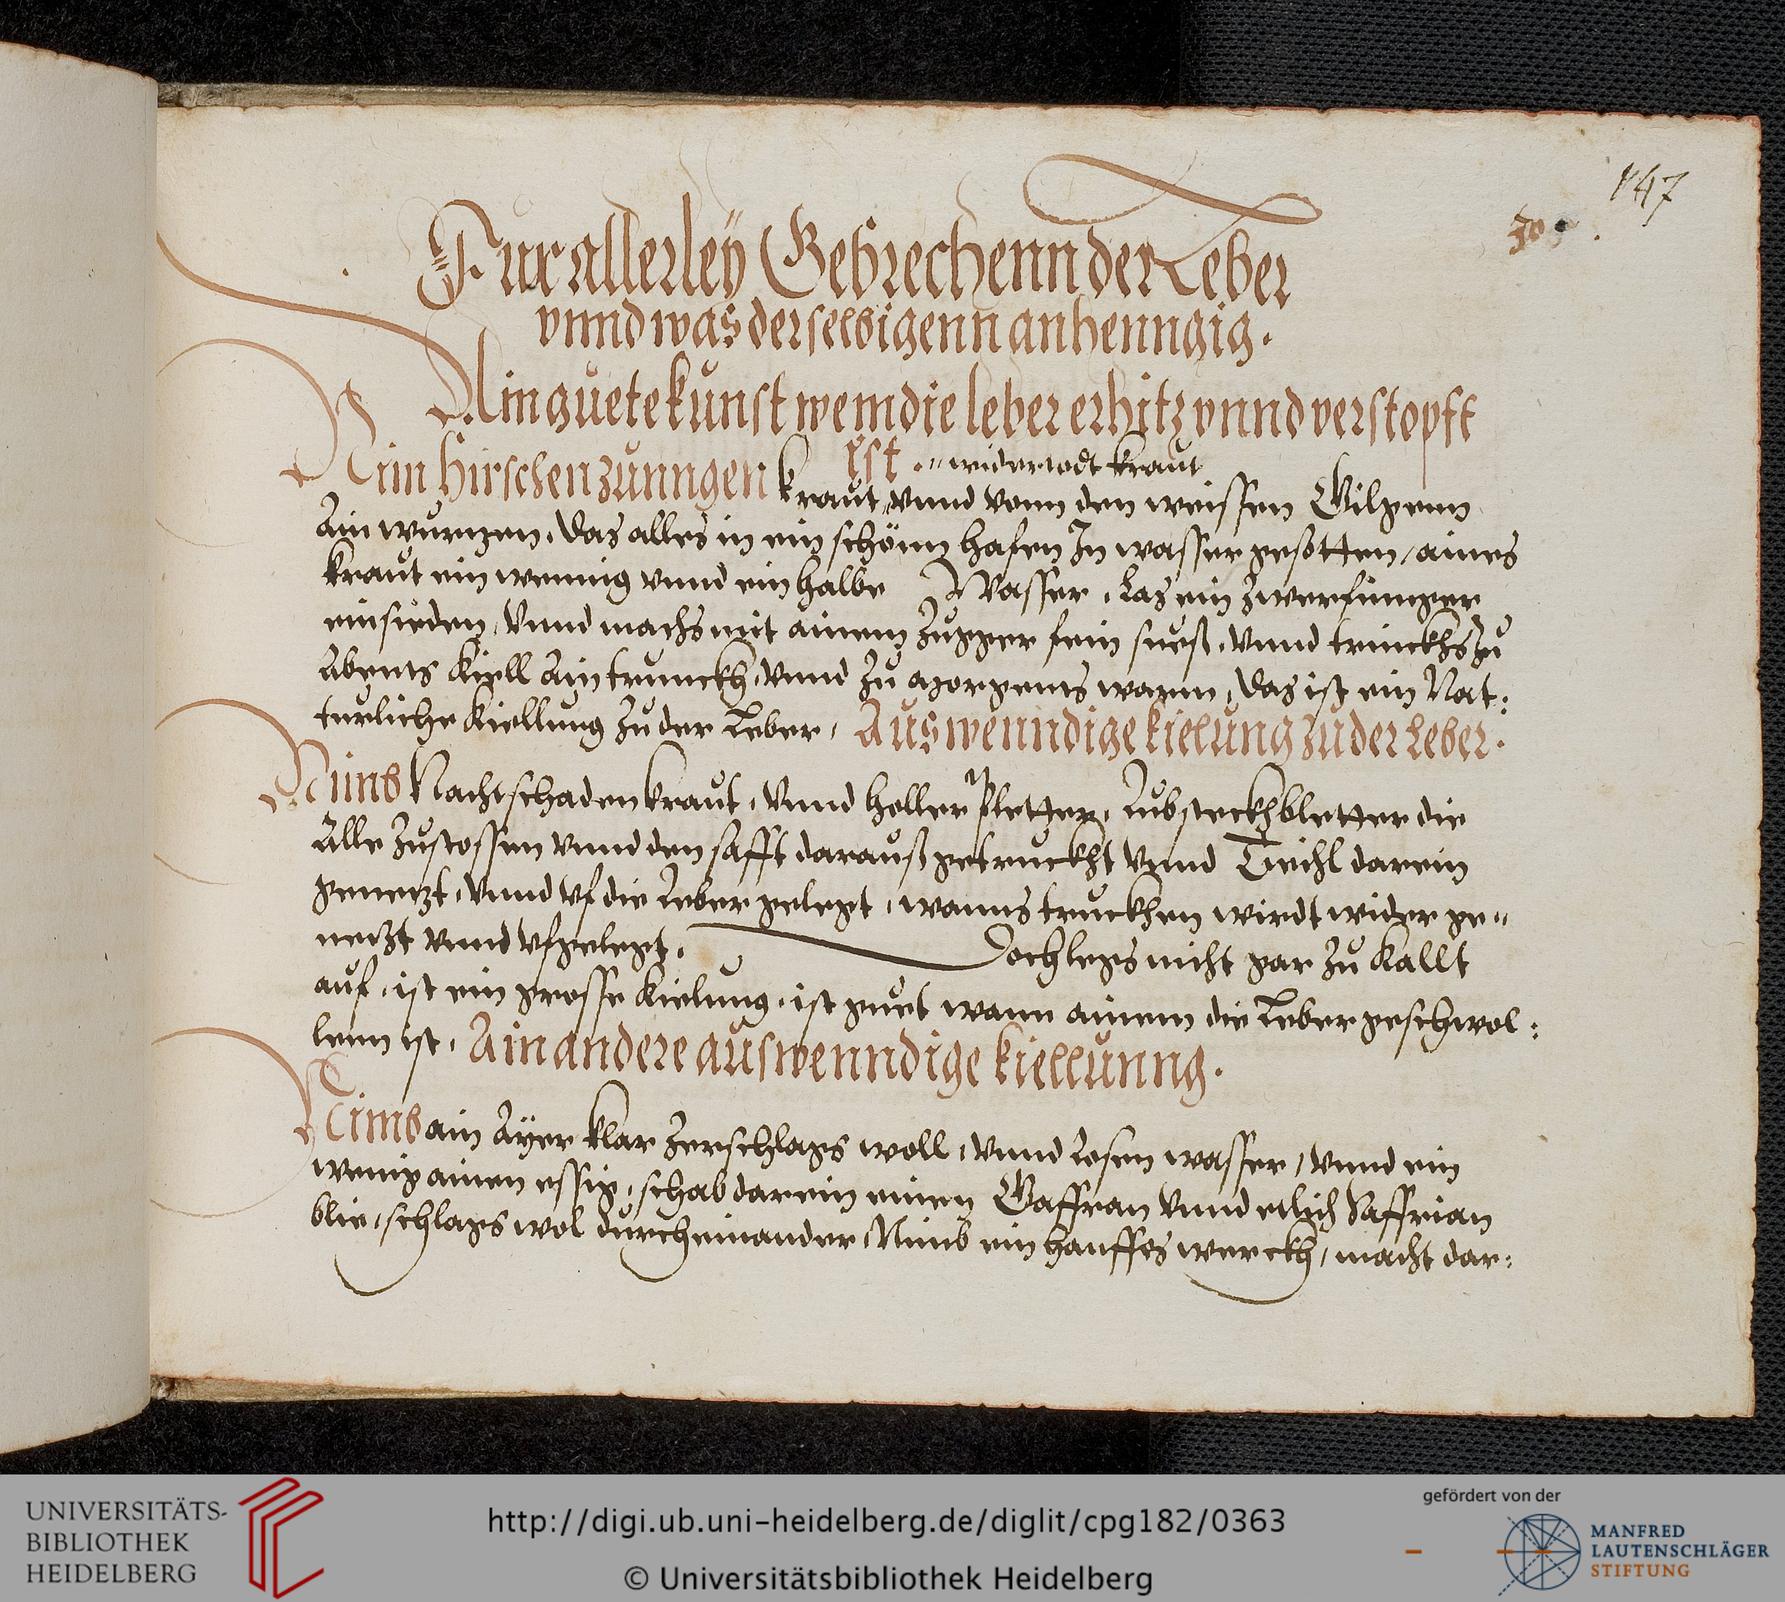 147
Fur allerley Gebrechenn der Leber
vnnd was derselbigenn anhenngig.
Ain guete kunst wem die leber erhitz vnnd verstopft
ist . widertodt kraut
Nim Hirschenzunngen kraut, vnnd vonn den weissen Gilgenn
Ain wurtzen, das alles in ein schönn hafen In wasser gesotten, aines
kraut ein wennig vnnd ein halbe Wasser, Las ein zwerfinnger
einsieden, Vnnd machs mit ainem Zugger fein suess, vnnd trinckhs zu
Abents kiell Ain trunckh, vnnd Zu morgents warm, das ist ein Nat:
turliche kiellung Zu der Leber, Auswenndige kielung zu der leber.
Nimb Nachtschadenkraut, vnnd holler Pletter, Lubsteckhbletter die
Alle Zustossen vnnd den safft darauss getruckht vnnd Teichl darein
genetzt, vnnd vf die Leber gelegt, wanns truckhen wirdt wider ge„
netzt vnnd vfgelegt. Doch legs nicht gar zu kallt
auf, ist ein grosse kielung, ist guet wann ainem die Leber geschwol:
lenn ist, Ain andere auswenndige kiellunng.
Nimb ain Ayer klar zerschlags woll, vnnd Rosen wasser, vnnd ein
wenig ainen essig, schab darein einen Gaffran vnnd etlich Saffrian
blie, schlags wol durcheinander, Nimb ein hanffes werckh, macht dar:
UNIVERSITÄTS-
BIBLIOTHEK
HEIDELBERG
http://digi.ub.uni-heidelberg.de/diglit/cpg182/0363
© Universitätsbibliothek Heidelberg
gefördert von der
MANFRED
LAUTENSCHLÄGER
STIFTUNG